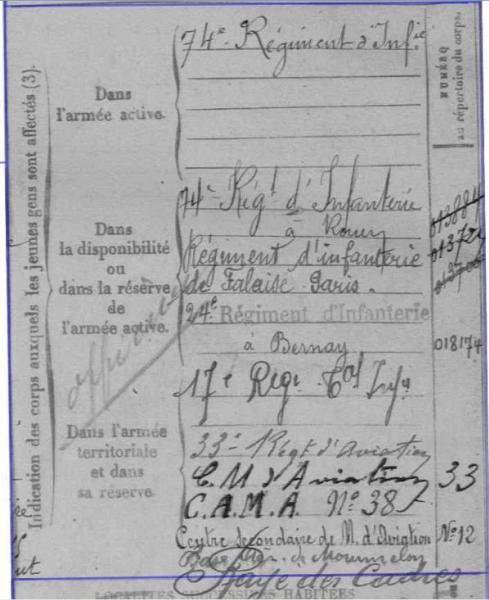 Indication des corps auxquels les jeunes gens sont affectés (3).
NUMÉRO
au répertoire du corps
Dans
l'armée active.
74e Régiment d'Inf.ie
Dans
la disponibilité
ou
dans la réserve
de
l'armée active.
74e Rég.t d'Infanterie
à Rouen
Régiment d'infanterie
de Falaise Paris.
24e Régiment d'Infanterie
à Bernay
018174
Dans l'armée
territoriale
et dans
sa réserve.
17e Reg. Inf.
33e Régt d'Aviation
C. M d'Aviation 33
C.A.M.A. No 38
Centre secondaire de M. d'Aviation No 12
Base de Mourmelon
des Cadres
LOCALITÉS SUCCESSIVES HABITÉES